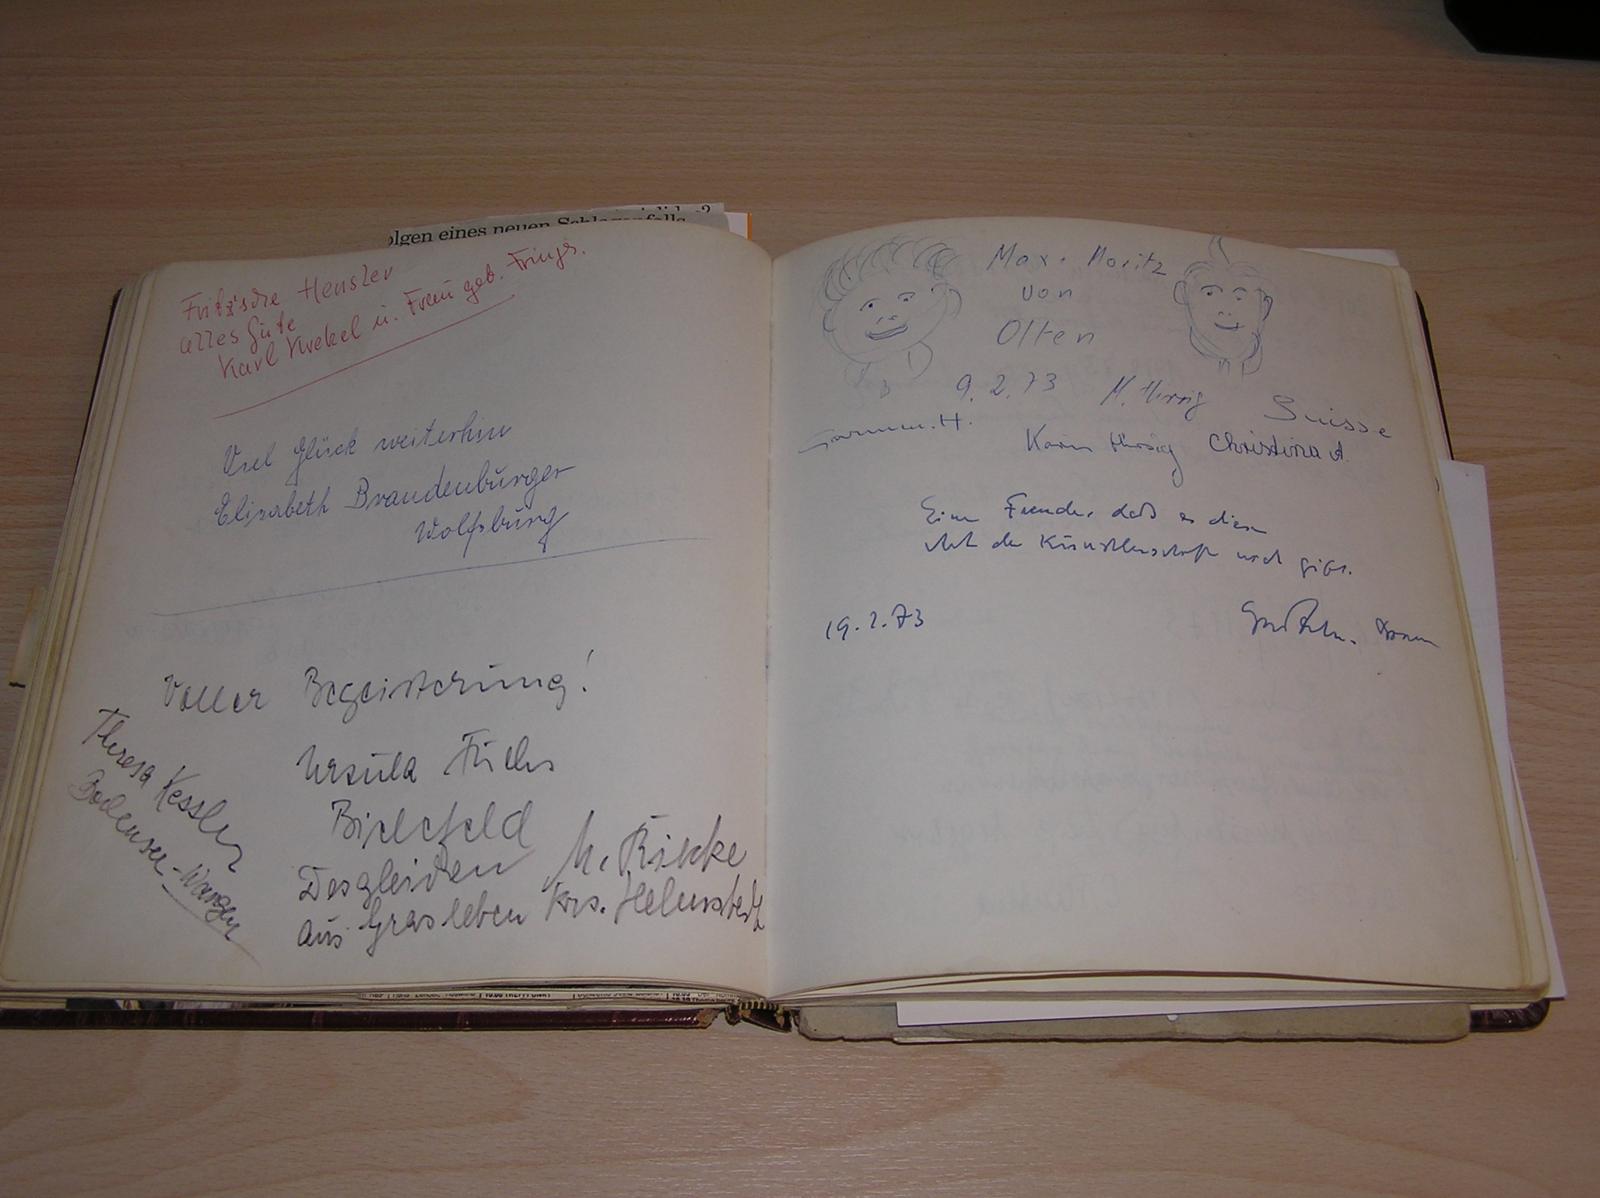 olgen eines neuen
Hensler
alles Gute
Karl Krekel u. Frau geb. Frings.
Viel Glück weiterhin
Elisabeth Brandenburger
Wolfsburg
Voller Begeisterung!
Ursula Fuchs
Bielefeld
Desgleichen M. Rikke
aus Grasleben Krs. Helmstedt
Theresa Kessler
Bodensee-Wangen
Max + Moritz
von
Olten
9.2.73 Suisse
Karin Christina A.
Eine Freude, daß es diese
Art der Künstlerschaft noch gibt.
19.2.73